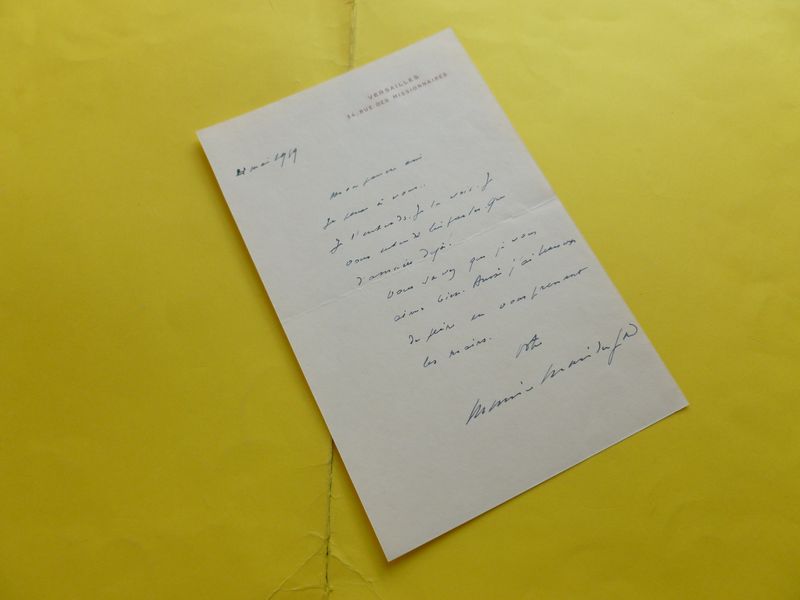 VERSAILLES
34, RUE DES MISSIONNAIRES
mai 1959
Mon pauvre ami
Je pense à vous.
Je l'entends. Je la vois. Je
vous entends Que
d'années déjà!
Vous savez que je vous
aime bien. Aussi j'ai beaucoup
de peine en vous prenant
les mains.